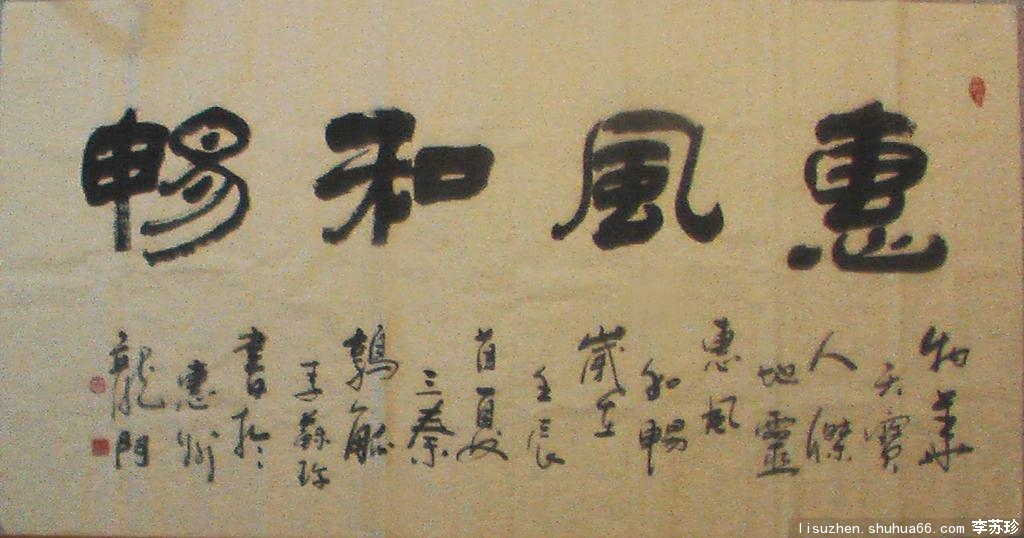 惠風和暢
物華
天寶
人傑
地靈
惠風
和暢
歲在
壬辰
首夏
三秦
鶉觚
李蘇珍
書於
惠州
龍門
lisuzhen.shuhua66.com 李苏珍